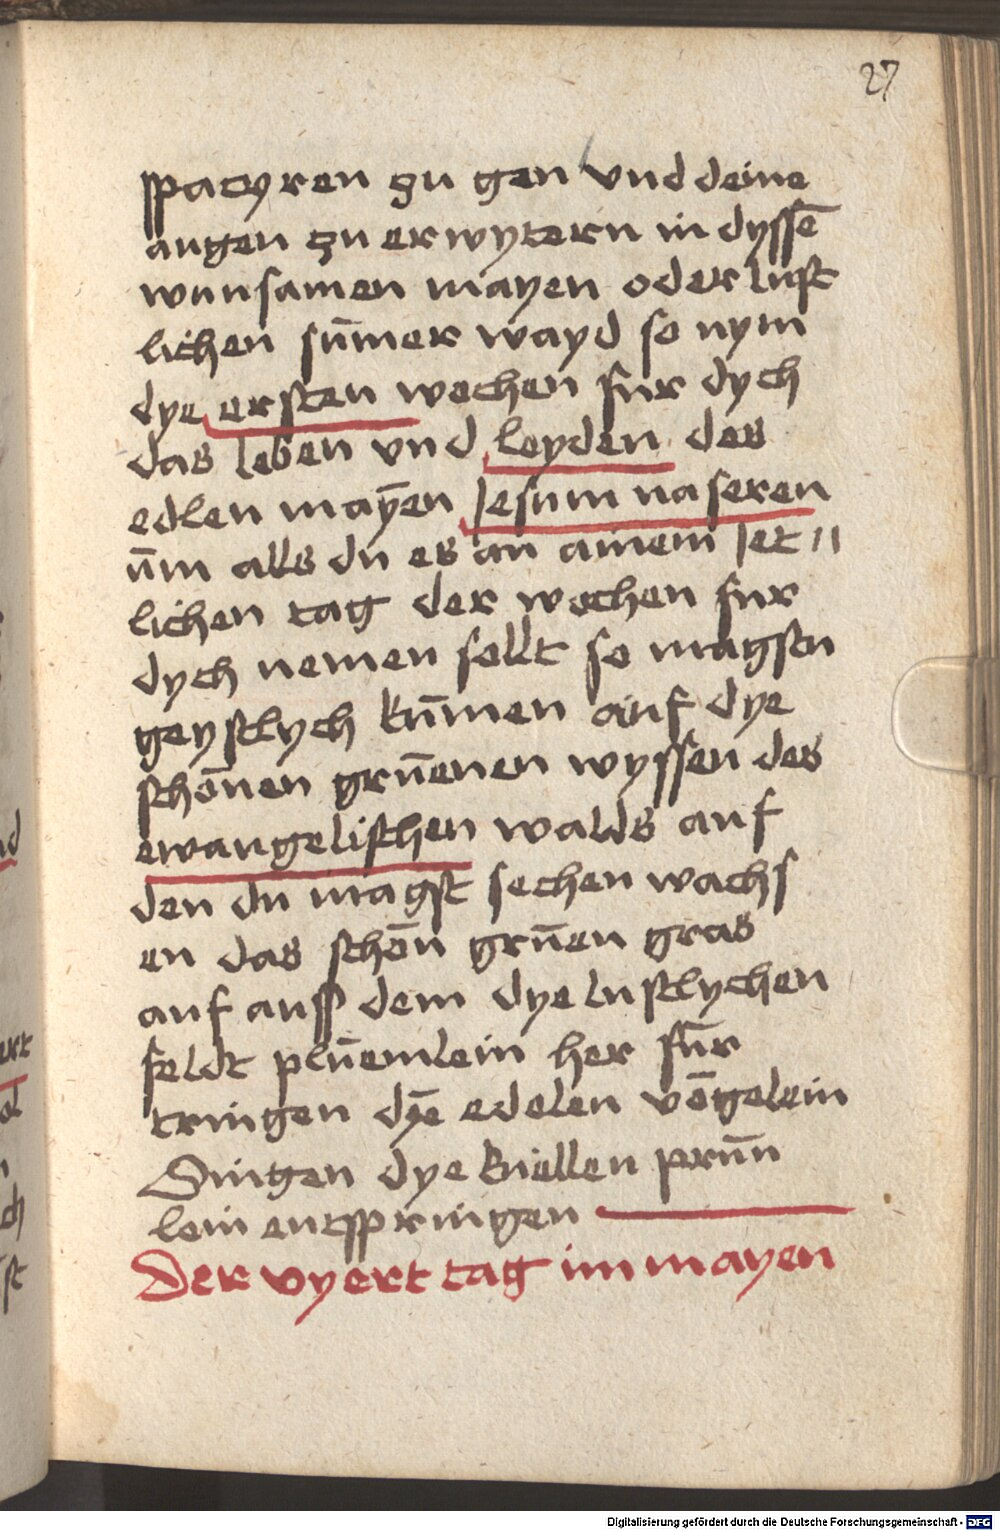 27
spacyren zu gen vnd deine
augen zu erwytern in dyssē
wunsamen mayen oder lust
lichen sūmer wayd so nym
dye ersten wochen fur dych
das leben vnd leyden des
edlen maȳen Jesum naseren
ūm alls du es an ainem Jet〃
lichen tag der wochen fur
dych nemen sollt so magstu
geystlych kūmen auf dye
schōnen grūenen wyssen des
ewangelischen walds auf
den du magst sechen wachs
en das schōn grūen gras
auf auss dem dye lustlychen
feldt plūemlein her fūr
tringen dȳe edelen vōgelein
Singen dye kiellen prūn
lein entspringen
Der vyert tag im mayen
Digitalisierung gefördert durch die Deutsche Forschungsgemeinschaft - DFG